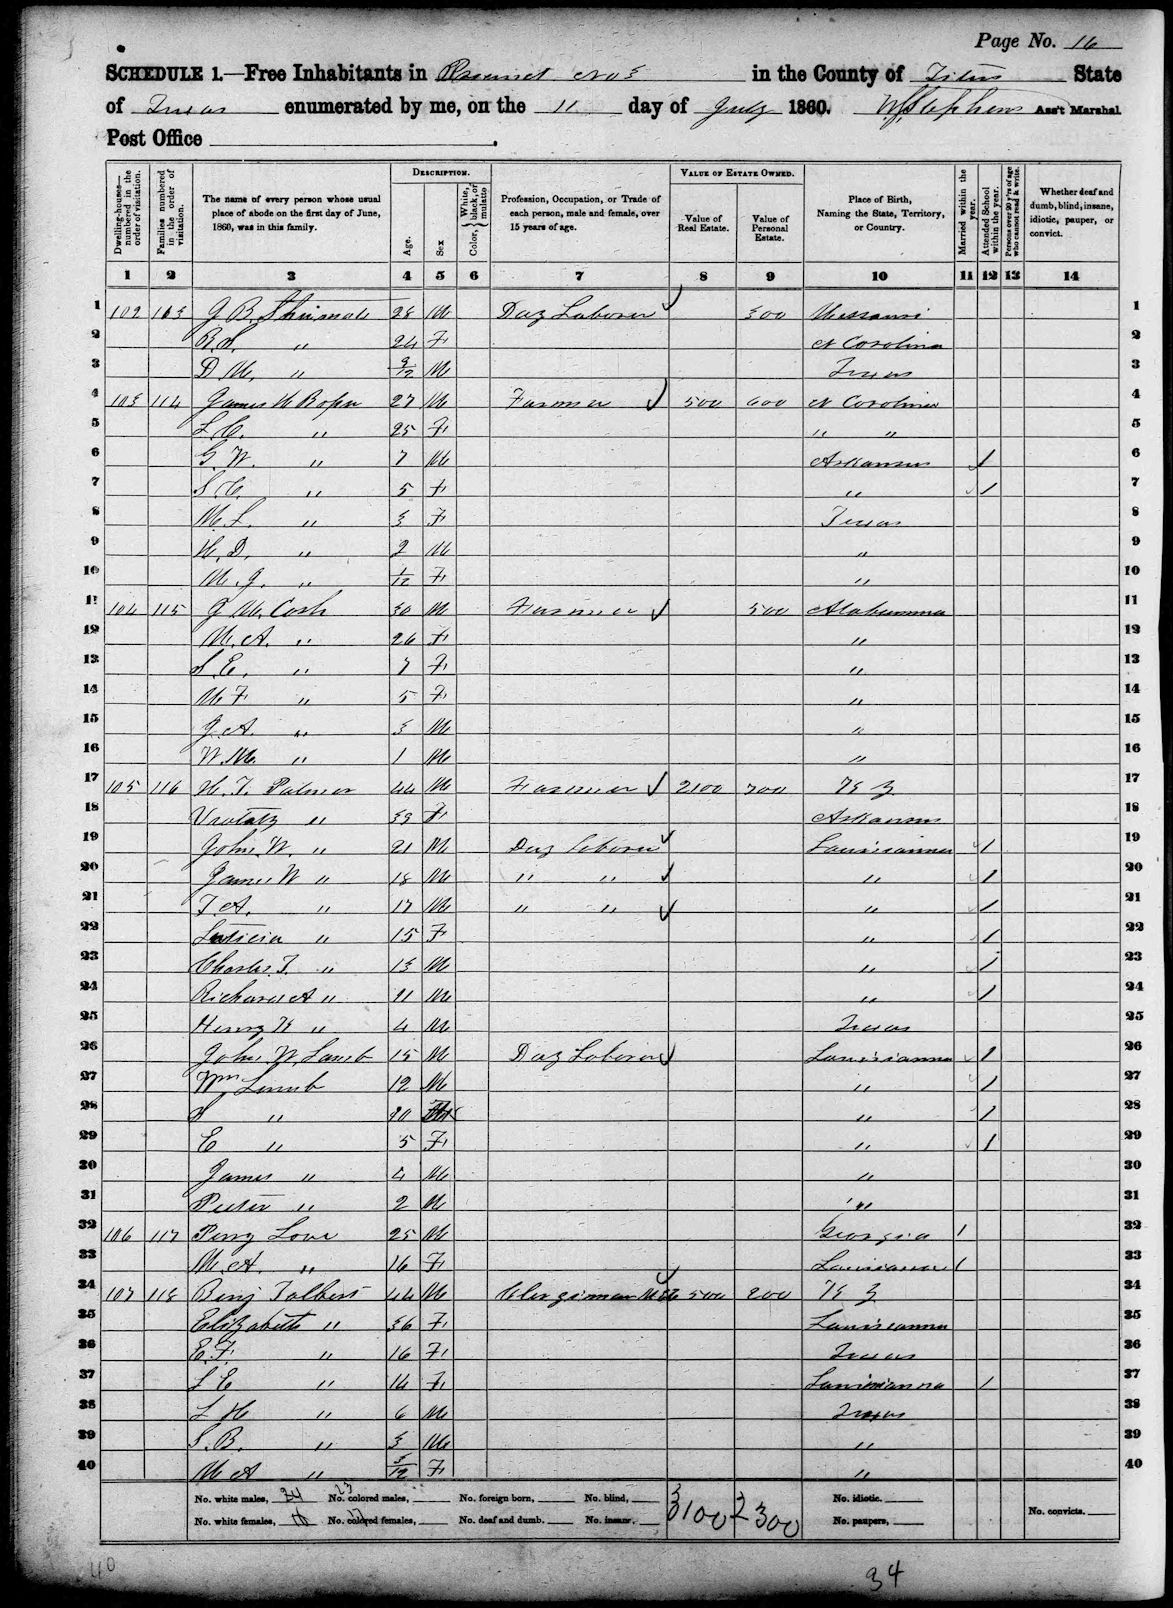 Page No. 16
SCHEDULE 1.—Free Inhabitants in Precinct No 3 in the County of Titus State
of Texas enumerated by me, on the 11 day of July 1860. Stephens Ass't Marshal
Post Office
Dwelling-houses—numbered in the order of visitation.
Families numbered in the order of visitation.
The name of every person whose usual place of abode on the first day of June, 1860, was in this family.
DESCRIPTION.
Age.
Sex
Color, { White, black, or mulatto
Profession, Occupation, or Trade of each person, male and female, over 15 years of age.
VALUE OF ESTATE OWNED.
Value of Real Estate.
Value of Personal Estate.
Place of Birth, Naming the State, Territory, or Country.
Married within the year.
Attended School within the year.
Persons over 20 y'rs of age who cannot read & write.
Whether deaf and dumb, blind, insane, idiotic, pauper, or convict.
1 2 3 4 5 6 7 8 9 10 11 12 13 14
1 102 28 M Day Laborer 300 Missouri 1
2 " 24 F N Carolina 2
3 D M. " M Texas 3
4 103 114 James 27 M Farmer 500 600 N Carolina 4
5 L. C. " 25 F " " 5
6 G. W. " 7 M Arkansas / 6
7 S. C. " 5 F " / 7
8 M. L. " 3 F Texas 8
9 H. D. " 2 M " 9
10 M. J. " 1/12 F " 10
11 104 115 J M. Cash 30 M Farmer 500 Alabamma 11
12 M. A. " 26 F " 12
13 S. E. " 7 F " 13
14 M F " 5 F " 14
15 J. A. " 3 M " 15
16 W. M. " 1 M " 16
17 105 116 H. T. Palmer 44 M Farmer 2100 700 K Y 17
18 " 33 F Arkansas 18
19 John. W. " 21 M Day laborer Louisianna / 19
20 James W " 18 M " " " / 20
21 T. A. " 17 M " " " / 21
22 Luticia " 15 F " / 22
23 Charles. T. " 13 M " / 23
24 Richard A " 11 M " / 24
25 Henry K " 4 M Texas 25
26 John. W. Lamb 15 M Day Laborer Louisianna / 26
27 Wm Lamb 12 M " / 27
28 S " 10 " / 28
29 E " 5 F " / 29
30 James " 4 M " 30
31 Peter " 2 M " 31
32 106 117 Perry Love 25 M Georgia / 32
33 M. A. " 16 F Louisianna / 33
34 107 118 Benj Talbert 44 M Clergiman 500 200 K Y 34
35 Elizabeth " 36 F Louisianna 35
36 E. F. " 16 F Texas 36
37 L E " 14 F Louisianna / 37
38 L H " 6 M Texas 38
39 S. B. " 3 M " 39
40 M A " F " 40
No. white males, 24 No. colored males, No. foreign born, No. blind, No. idiotic.
23
No. white females, No. colored females, No. deaf and dumb. No. insane, No. paupers, No. convicts.
17
3100 2300
40
34